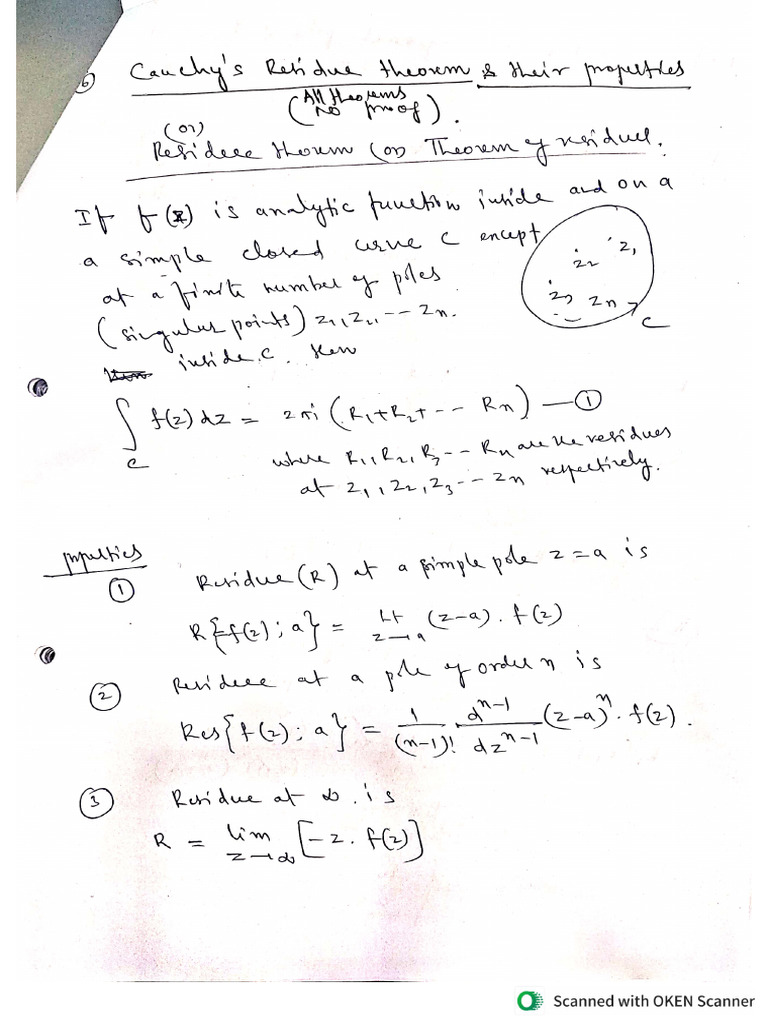 6) Cauchy's Residue theorem & their properties
(All theorems no proof).
(or)
Residue thorem (or) Theorem of residues.
If f(z) is analytic function inside and on a
a simple closed curve C except
at a finite number of poles
(singular points) z₁, z₂, -- zₙ.
inside C. then
z₁
z₂
z₃ zₙ
C
∫_C f(z) dz = 2πi (R₁+R₂+ -- Rₙ) — ①
where R₁, R₂, R₃ -- Rₙ are the residues
at z₁, z₂, z₃ -- zₙ respectively.
properties
① Residue (R) at a simple pole z=a is
R{f(z); a} = Lt_{z→a} (z-a). f(z)
② Residue at a pole of order n is
Res{f(z); a} = 1/(n-1)! d^{n-1}/dz^{n-1} (z-a)^n. f(z).
③ Residue at ∞. is
R = lim_{z→∞} [-z. f(z)]
Scanned with OKEN Scanner